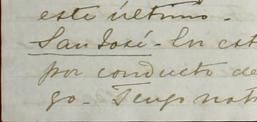 este último.-
San José- En est
por conducto de
go.- Tengo not